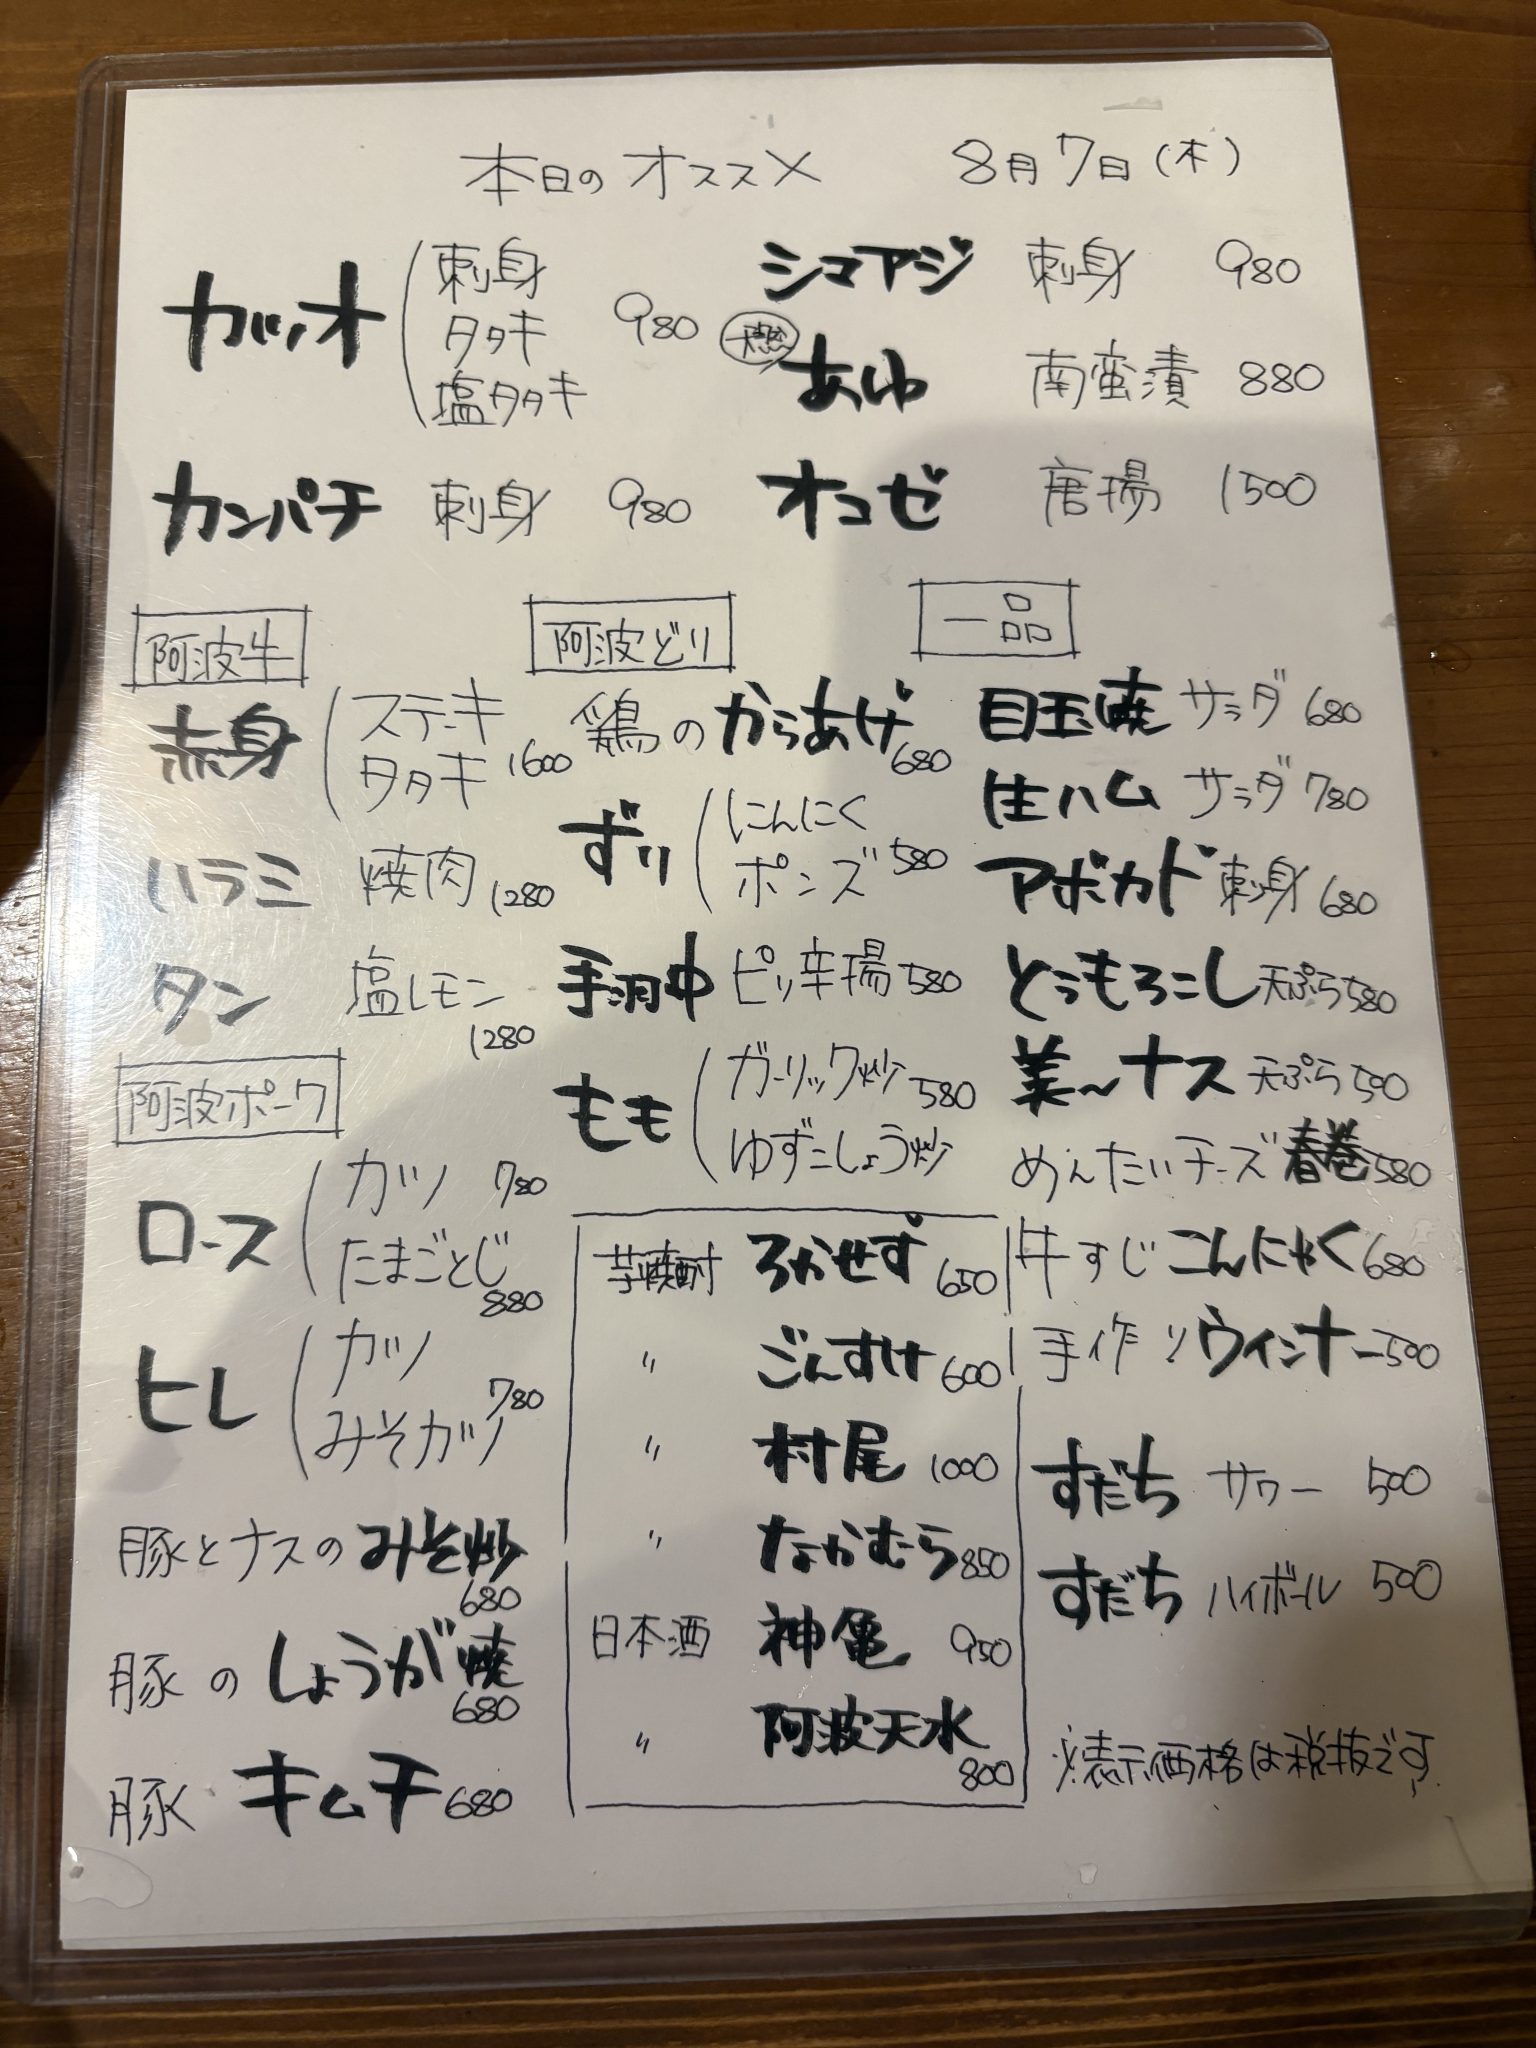 本日のオススメ 8月7日(木)
カツオ 刺身 タタキ 塩タタキ 980
カンパチ 刺身 980
シマアジ 刺身 980
天然 あゆ 南蛮漬 880
オコゼ 唐揚 1500
阿波牛
赤身 ステーキ タタキ 1600
ハラミ 焼肉 1280
タン 塩レモン 1280
阿波ポーク
ロース カツ 780
たまごとじ 880
ヒレ カツ みそカツ 780
豚とナスのみそ炒 680
豚のしょうが焼 680
豚キムチ 680
阿波どり
鶏のからあげ 680
ずり にんにく ポンズ 580
手羽中 ピリ辛揚 580
もも ガーリック炒 ゆずこしょう炒 580
芋焼酎 ろかせず 650
〃 ごんすけ 600
〃 村尾 1000
〃 なかむら 850
日本酒 神亀 950
〃 阿波天水 800
一品
目玉焼 サラダ 680
生ハム サラダ 780
アボカド 刺身 680
とうもろこし 天ぷら 580
美〜ナス 天ぷら 500
めんたいチーズ春巻 580
牛すじこんにゃく 680
手作りウインナー 500
すだち サワー 500
すだち ハイボール 500
※表示価格は税抜です